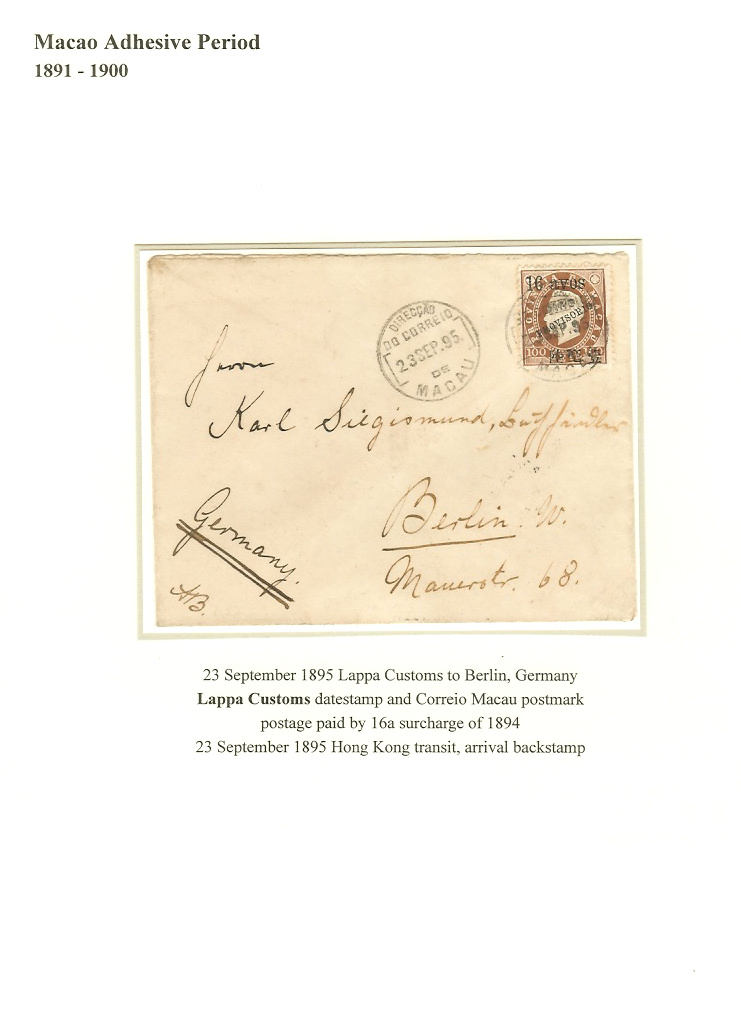 Macao Adhesive Period
1891 - 1900
DIRECÇÃO
DO CORREIO
23 SEP. 95
DE
MACAU
16 avós
PROVINCIA MACAU
PROVISORIO
100
MACAU
Herrn
Karl Siegismund, Buchhändler
Berlin W.
Mauerstr. 68.
Germany.
23 September 1895 Lappa Customs to Berlin, Germany
Lappa Customs datestamp and Correio Macau postmark
postage paid by 16a surcharge of 1894
23 September 1895 Hong Kong transit, arrival backstamp